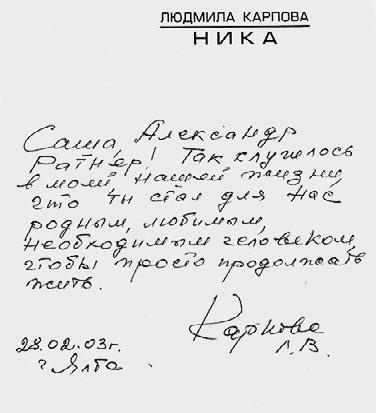 ЛЮДМИЛА КАРПОВА
НИКА
Саша, Александр
Ратнер! Так случилось
в моей нашей жизни,
что ты стал для нас
родным, любимым,
необходимым человеком,
чтобы просто продолжать
жить.
Карпова
Л.В.
28.02.03г.
г. Ялта.